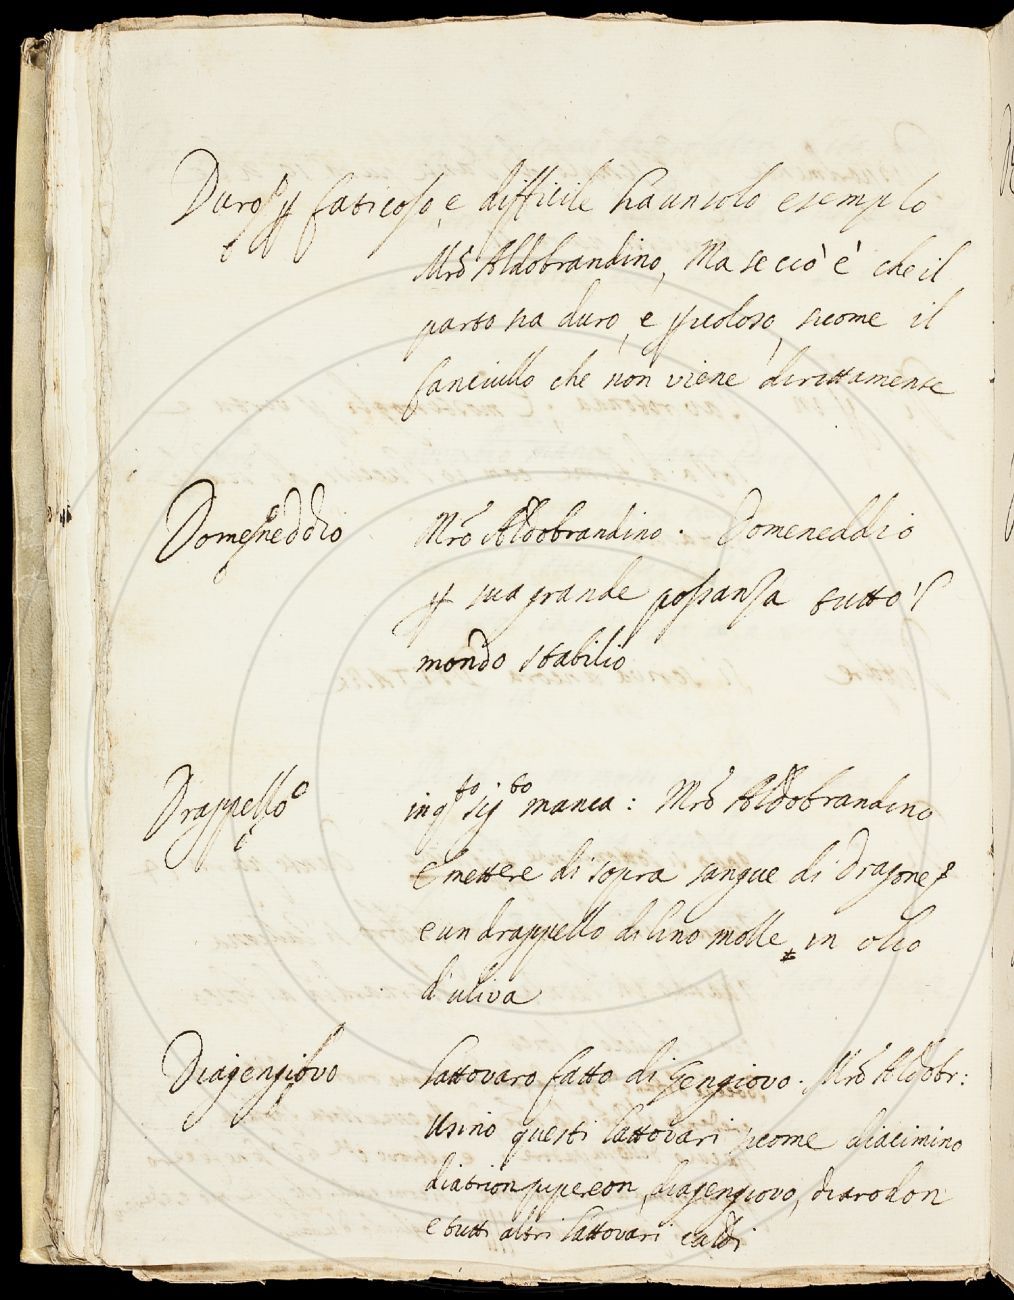 Duro p faticoso, e difficile ha un solo esempio
Mro Aldobrandino, Ma se cciò è che il
parto sia duro, e picoloso, sicome il
fanciullo che non viene dirittamente
Domeneddio Mro Aldobrandino. Domeneddio
p sua grande possanza tutto 'l
mondo stabilio
Drappello in q.to sig.to manca: Mro Aldobrandino
e mettere di sopra sangue di Dragone
e un drappello di lino molle in olio
d'uliva
Diagengiovo lattovaro fatto di Gengiovo. Mro Aldobr:
Usino questi lattovari sicome diacimino
diatrion pipereon, diagengiovo, diarodon
e tutti altri lattovari caldi